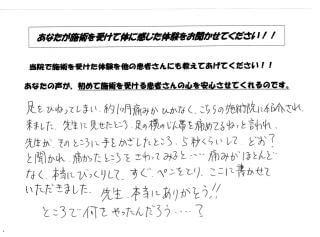 あなたが施術を受けて体に感じた体験をお聞かせてください！！
当院で施術を受けた体験を他の患者さんにも教えてあげてください！！
あなたの声が、初めて施術を受ける患者さんの心を安心させてくれるのです。
足をひねってしまい、約1ヶ月痛みがひかなく、こちらの施術院に紹介され
来ました。先生に見せたところ、足の横のじん帯を痛めてるねっと言われ、
先生が、そのところに手をかざしたところ、5秒くらいして、どお？
と聞かれ、痛かったところをさわってみると・・・・・痛みがほとんど
なく、本当にびっくりして、すぐ、ペンをとり、ここに書かせて
いただきました。先生、本当にありがとう!!
ところで何をやったんだろう・・・・？